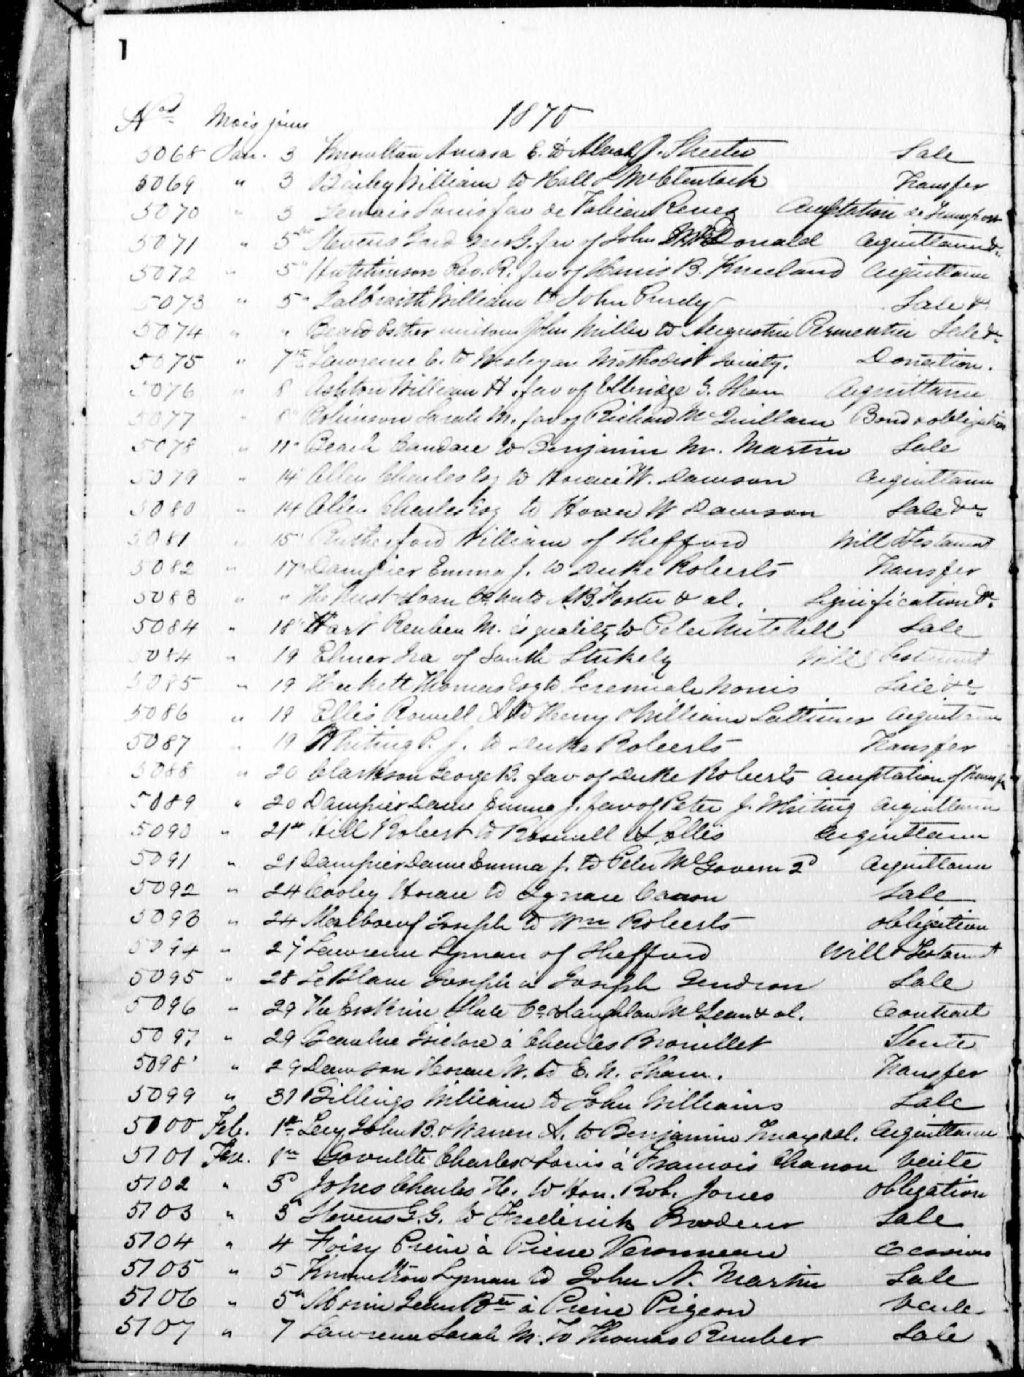 1
1870
Nos Mois jours
5068 Jan. 3 Knowlton Amasa E. to Alvah J. Streeter Sale
5069 " 3 Bailey William to Hall & McClintock Transfer
5070 " 3 Louis fav de Fabien Acceptation de Transport
5071 " 5 Stevens Gard fav of John McDonald Acquittance &c
5072 " 5" Hutchinson Rev. R. fav of B. Kneeland Acquittance
5073 " 5" Galbraith William to John Purdy Sale &c
5074 " " Beard Esther widow John Miller to Augustin Parmentier Sale &c
5075 " 7th Lawrence C. to Wesleyan Methodist Society. Donation.
5076 " 8 Ashton William H. fav of Elbridge G. Sham Acquittance
5077 8" Robinson Sarah M. fav of Richard McQuillam Bond & obligation
5078 " 11" Beach Candace to Benjamin M. Martin Sale
5079 " 14" Allen Charles Esq to Horace W. Dawson Acquittance
5080 " 14 Allen Charles Esq to Horace W Dawson Sale &c
5081 " 15" Rutherford William of Shefford Will & Testament
5082 " 17" Dampier Emma J. to Duke Roberts Transfer
5083 " " The Trust & Loan Co A.B. Foster & al. Signification &c.
5084 " 18" Hart Reuben M. ès qualité to Peter Mitchell Sale
5084 " 19 Elmer Ira of South Stukely Will & Testament
5085 " 19 Hackett Thomas Esq to Jeremiah Norris Sale &c
5086 " 19 Ellis Rowell A to Henry William Lattimer Acquittance
5087 " 19 Whiting P. J. to Duke Roberts Transfer
5088 " 20 Clarkson George B. fav of Duke Roberts Acceptation of transfer
5089 " 20 Dampier Dame Emma J. fav of Peter J. Whiting Acquittance
5090 " 21st Hill Robert to Roswell A. Ellis Acquittance
5091 " 21 Dampier Dame Emma J. to Peter McGovern 2d Acquittance
5092 " 24 Cooley Horace to Ignace Sale
5093 " 24 Malboeuf Joseph to Wm Roberts obligation
5094 " 27 Lawrence Lyman of Shefford Will & Testament
5095 " 28 LeBlanc Joseph à Joseph Gendron Sale
5096 " 29 The Erskine Slate Co & Laughlan McLean & al. Contract
5097 " 29 Beaulne Isidore à Charles Brouillet Vente
5098 " 29 Dawson Horace W. to E. N. Sham. Transfer
5099 " 31 Billings William to John Williams Sale
5100 Feb. 1st Levy John B. & Warren A. to Benjamin & al. Acquittance
5101 Fev. 1er Charles & Louis à Francois Chanon Vente
5102 " 3d Jones Charles H. to Hon. Rob. Jones Obligation
5103 " 3 Stevens G.G. to Frederick Brodeur Sale
5104 " 4 Foisy Pierre à Pierre Veronneau Cession
5105 " 5 Knowlton Lyman to John N. Martin Sale
5106 " 5th Morin Jean Bte à Pierre Pigeon Vente
5107 " 7 Lawrence Sarah M. to Thomas Rumber Sale